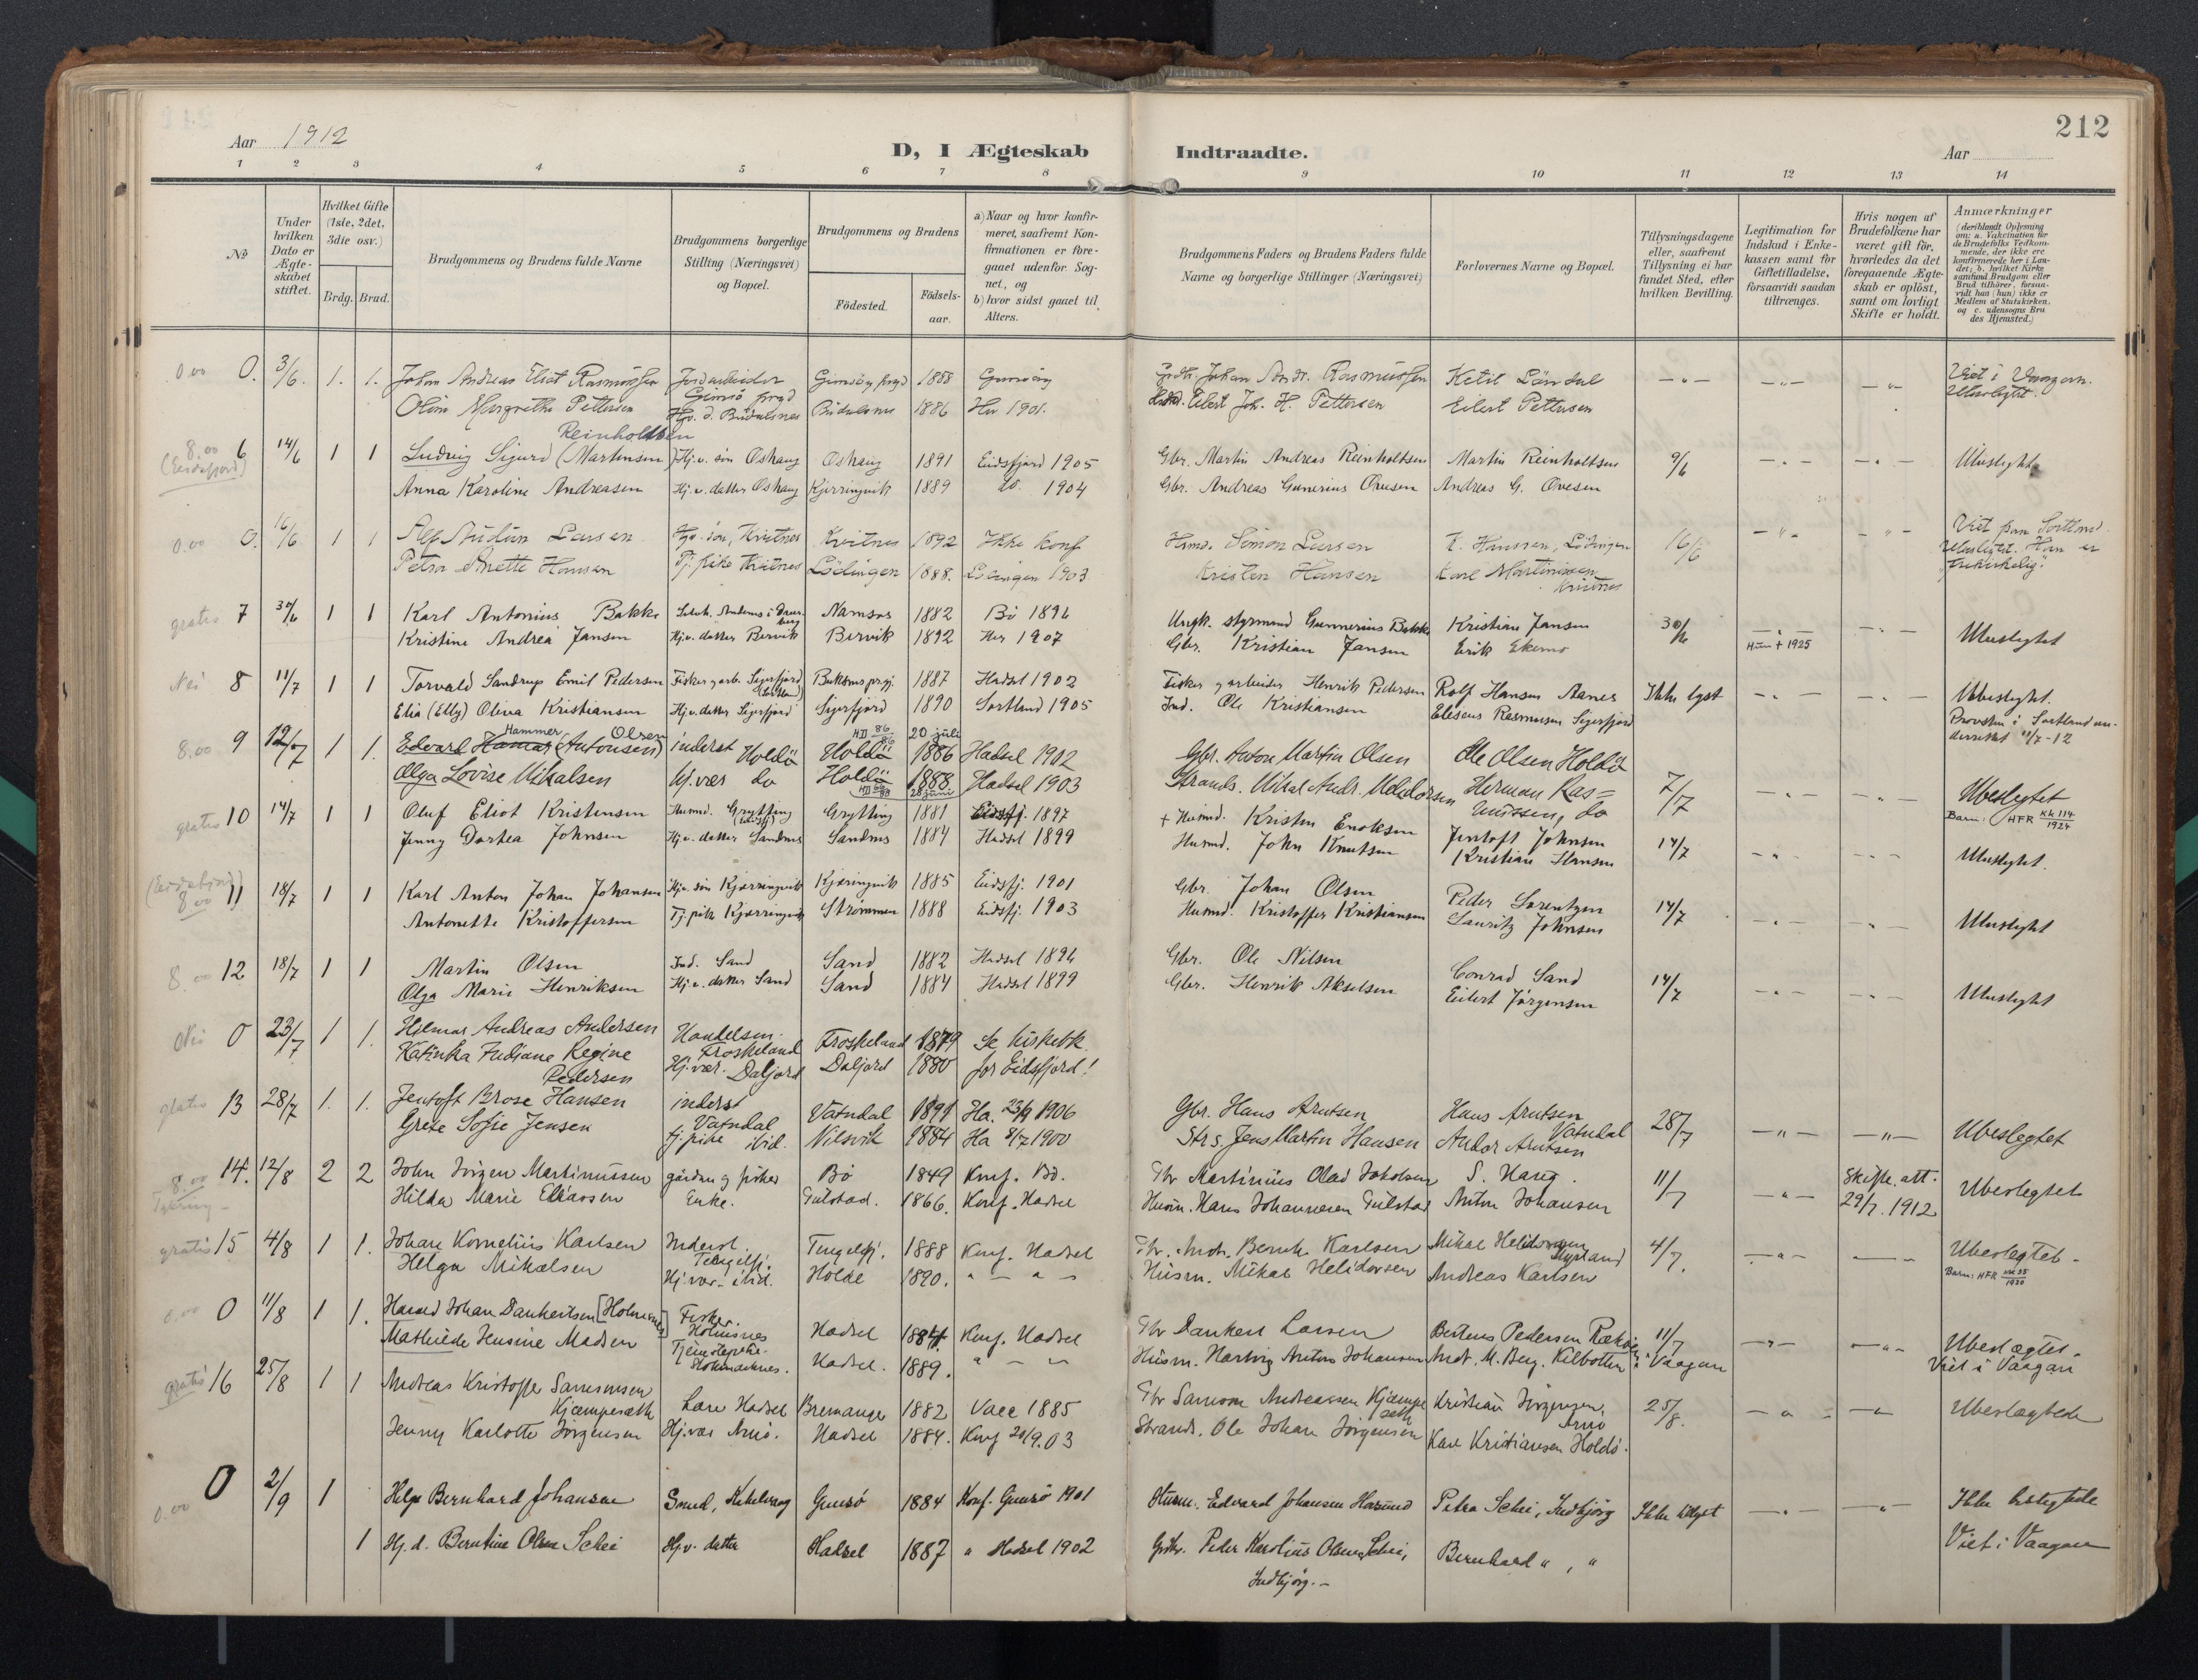 212
Aar 1912
D, I Ægteskab Indtraadte.
Aar
1 2 3 4 5 6 7 8 9 10 11 12 13 14
No
Under hvilken Dato er Ægte-skabet stiftet.
Hvilket Gifte (1ste, 2det, 3die osv.)
Brdg. Brud.
Brudgommens og Brudens fulde Navne
Brudgommens borgerlige Stilling (Næringsvei) og Bopæl.
Brudgommens og Brudens
Födested.
Födsels-aar.
a) Naar og hvor konfir-meret, saafremt Kon-firmationen er fore-gaaet udenfor Sog-net, og
b) hvor sidst gaaet til Alters.
Brudgommens Faders og Brudens Faders fulde Navne og borgerlige Stillinger (Næringsvei)
Forlovernes Navne og Bopæl.
Tillysningsdagene eller, saafremt Tillysning ei har fundet Sted, efter hvilken Bevilling.
Legitimation for Indskud i Enke-kassen samt for Giftetilladelse, forsaavidt saadan tiltrænges.
Hvis nogen af Brudefolkene har været gift før, hvorledes da det foregaaende Ægte-skab er oplöst, samt om lovligt Skifte er holdt.
Anmærkninger
(deriblandt Oplysning om: a. Vakcination for de Brudefolks Vedkom-mende, der ikke ere konfirmerede her i Lan-det; b. hvilket Kirke samfund Brudgom eller Brud tilhörer, forsaa-vidt hun (hun) ikke er Medlem af Statskirken. og c. udensogns Bru des Hjemsted.)
0.00 0. 3/6. 1. 1. Johan Andreas Eliot Rasmussen Jordarbeider Gimsö prgd Gimsöy prgd 1888 Gimsöy Johan Andr. Rasmussen Ketil Løndal Viet i Vaagan.
Olina Margrethe Pettersen Budalsnes 1886 Her 1901. Eilert Joh. H. Pettersen Eilert Pettersen Ubeslegtet.
Reinholdtsen
8.00 (Eidsfjord) 6 14/6 1 1 Ludvig Sigurd (Martinsen) Hj.v. søn Oshaug Oshaug 1891 Eidsfjord 1905 Gbr. Martin Andreas Reinholtsen Martin Reinholtsen 9/6 Ubeslegtet
Anna Karoline Andreasen Hj.v. datter Oshaug Kjerringvik 1889 do. 1904 Gbr. Andreas Gunerius Ovesen Andreas G. Ovesen
0.00 0. 16/6 1 1 Alf Audun Larsen Hjv. søn, Kvitnes Kvitnes 1892 Ikke konf Husmd. Simon Larsen K. Hanssen, Lödingen 16/6 Viet paa Sortland.
Petra Anette Hansen Tj. pike Kvitnes Lödingen 1888. Lödingen 1903 Kristen Hansen Karl Martinissen Kvitnes Ubeslegtet. Han er frikirkelig.
gratis 7 30/6 1 1 Karl Antonius Bakke Namsos 1882 Bö 1896 Ungk. styrmand Gunnerius Bakke Kristian Jansen 30/6 Ubeslegtet
Kristine Andrea Jansen Hj.v. datter Bervik Bervik 1892 Her 1907 Gbr. Kristian Jansen Erik Ekemo Hun + 1925
Nei 8 11/7 1 1 Torvald Sandrup Emil Pedersen Fisker g arb. Sigerfjord (Sortland) Buksnes prgj. 1887 Hadsel 1902 Fisker g arbeider Henrik Pedersen Rolf Hansen Aanes Ikke lyst Ubeslegtet.
Elia (Elly) Oliva Kristiansen Hj.v. datter Sigerfjord Sigerfjord 1890 Sortland 1905 Ind. Ole Kristiansen Eliseus Rasmussen Sigerfjord Provsten i Sortland un-derrettet 11/7-12
8.00 9 12/7 1 1. Edvard Hamar (Antonsen) Hammer Olsen inderst Holdö Holdö HD 86/86 20 juli 1886 Hadsel 1902 Gbr. Anton Martin Olsen Ole Olsen Holdö
Olga Lovise Mikalsen hj.vær do Holdö 1888 28 juni Hadsel 1903 Strands. Mikal Andr. Melidorsen Herman Ras=mussen, do 7/7 Ubeslegtet
Barn: HFR Kk 114/1924
gratis 10 14/7 1 1 Oluf Eliot Kristensen Husmd. Grytting Grytting 1881 Eidsfj. 1897 + Husmd. Kristen Enoksen Jentoft Johnsen 14/7 Ubeslegtet.
Jenny Dortea Johnsen Hj.v. datter Sandnes Sandnes 1884 Hadsel 1899 Husmd. John Knutsen Kristian Hansen
(Eidsfjord) 8.00 11 18/7 1 1 Karl Anton Johan Johansen Hj.v. søn Kjærringvik Kjæringvik 1885 Eidsfj. 1901 Gbr. Johan Olsen Peder Lorentzen 14/7 Ubeslegtet
Antonette Kristoffersen Tj. pike Kjærringvik Strømmen 1888 Eidsfj. 1903 Husmd. Kristoffer Kristiansen Lauritz Johnsen
8.00 12 18/7 1 1 Martin Olsen Ind. Sand Sand 1882 Hadsel 1896 Gbr. Ole Nilsen Conrad Sand 14/7 Ubeslegtet
Olga Marie Henriksen Hj.v. datter Sand Sand 1884 Hadsel 1899 Gbr. Henrik Akselsen Eilert Jørgensen
Nei 0 23/7 1 1. Hilmar Andreas Andersen Handelsm. Froskeland Froskeland 1879 Se kirkebk.
Katinka Judiane Regine Pedersen Hj.vær. Daljord Daljord 1880 for Eidsfjord!
gratis 13 28/7 1. 1. Jentoft Brose Hansen inderst Vatndal Vatndal 1891 Ha. 23/9 1906 Gbr. Hans Arntsen Hans Arntsen Vatndal 28/7 Ubeslegtet
Grete Sofie Jensen tj.pike ibid. Nilsvik 1884 Ha 8/7 1900 Strs. Jens Martin Hansen Andor Arntsen
8.00 14. 12/8 2 2 John Jörgen Martinussen gårdm g fisker Bö 1849 Konf. Bö. Gbr Martinius Olad Jakobsen S. Haug. 11/7 Skifte att. 29/7. 1912 Ubeslegtet
Hilda Marie Eliassen Enke. Gulstad. 1866. Konf. Hadsel Husm. Hans Johannesen Gulstad Anton Johansen
gratis 15 4/8 1 1. Johan Kornelius Karlsen Inderst Tengelfj. Tengelfj. 1888 Konf. Hadsel Gbr. Andr. Bernh. Karlsen Mikal Helidorsen Myrland 4/7. Ubeslegtet -
Helga Mikalsen Hj.vær. ibid. Holdö 1890. " - " - Husm. Mikal Helidorsen Andreas Karlsen Barn: HFR 1920
0.00 0 11/8 1 1. Harald Johan Dankertsen [Holmesnes] Fisker. Holmsnes Hadsel 1884. Konf. Hadsel Gbr Dankert Larsen Bertens Pedersen 11/7 Ubeslægtet.
Mathilde Jensine Madsen Tjenestepike. Stokmarknes. Hadsel. 1889. " - " Husm. Hartvig Anton Johansen Andr. M. Berg. Kilbotten i Vaagan Viet i Vaagan
gratis 16 25/8 1 1 Andreas Kristoffer Samsonsen Kjæmpesæth Lære Hadsel Bremanger 1882 Vacc 1885 Gbr Samson Andreassen Kjæmpeseth Kristian Jörgensen, Arnö 25/8. Ubeslægtede
Jenny Karlotte Jörgensen Hj.vær Arnö. Hadsel 1884. Konf 20/9.03 Strands. Ole Johan Jörgensen Karl Kristiansen Holdö.
0.00 0 2/9 1 Helge Bernhard Johansen Smed, Gimsö 1884 Konf. Gimsö 1901 Husm. Edvard Johansen Petra Schei, Indbjörg Ikke tillyst Ikke beslegtede
1 Hj. d. Berntine Olsen Schei Hj.v. datter Hadsel 1887 " Hadsel 1902 Gbr. Peder Karolius Olsen Schei, Bernhard " , " Viet i Vaagan
Indbjörg. -